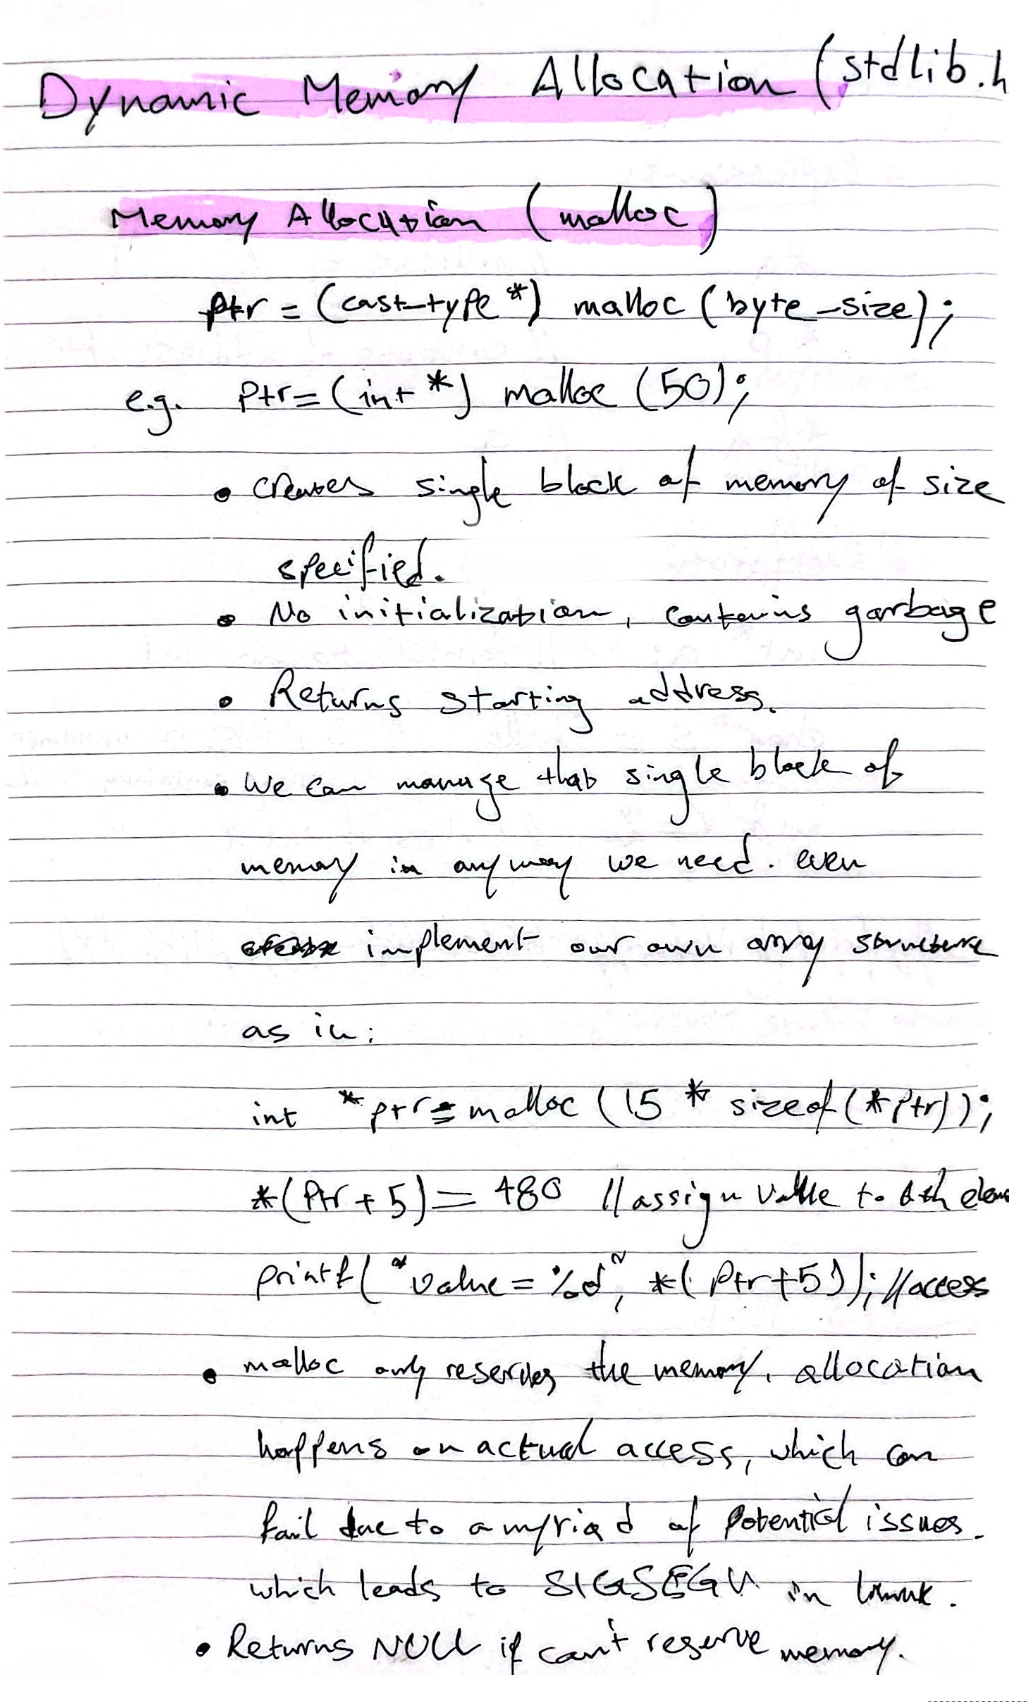 Dynamic Memory Allocation (stdlib.h
Memory Allocation (malloc)
ptr = (cast-type *) malloc (byte-size);
e.g. ptr = (int *) malloc (50);
• Creates single block of memory of size
specified.
• No initialization, contains garbage
• Returns starting address.
• We can manage that single block of
memory in any way we need. even
implement our own array structure
as in:
int *ptr = malloc (15 * sizeof(*ptr));
*(ptr + 5) = 480 //assign value to 6th elem
printf("value = %d", *(ptr+5)); //access
• malloc only reserves the memory. allocation
happens on actual access, which can
fail due to a myriad of potential issues.
which leads to SIGSEGV in linux.
• Returns NULL if can't reserve memory.